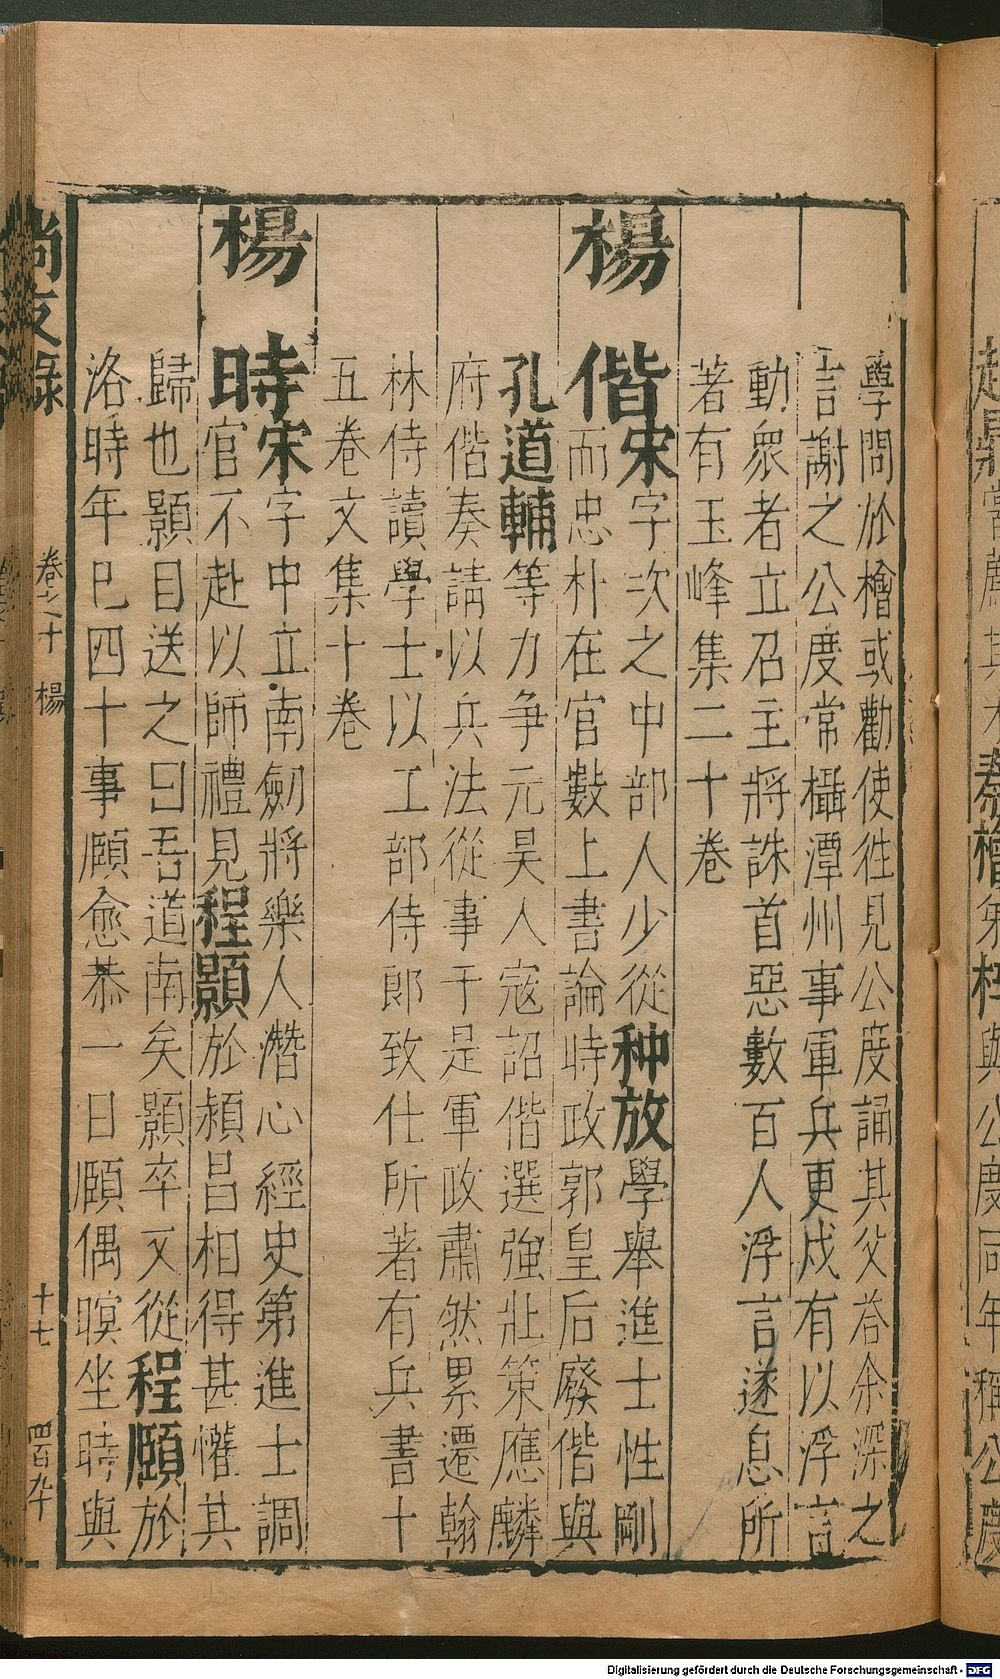 學問於檜或勸使徃見公度誦其父荅余深之
言謝之公度常攝潭州事軍兵更戍有以浮言
動衆者立召主將誅首惡數百人浮言遂息所
著有玉峰集二十卷
楊偕宋字次之中部人少從种放學舉進士性剛
而忠朴在官數上書論時政郭皇后廢偕與
孔道輔等力争元昊入寇詔偕選強壯策應麟
府偕奏請以兵法從事于是軍政肅然累遷翰
林侍讀學士以工部侍郎致仕所著有兵書十
五卷文集十卷
楊時宋字中立南劒將樂人潛心經史第進士調
官不赴以師禮見程顥於潁昌相得甚懽其
歸也顥目送之曰吾道南矣顥卒又從程頤於
洛時年巳四十事頤愈恭一日頤偶暝坐時與
尚友錄
卷之十 楊
十七
秦檜
與公度同年稱公度
Digitalisierung gefördert durch die Deutsche Forschungsgemeinschaft - DFG